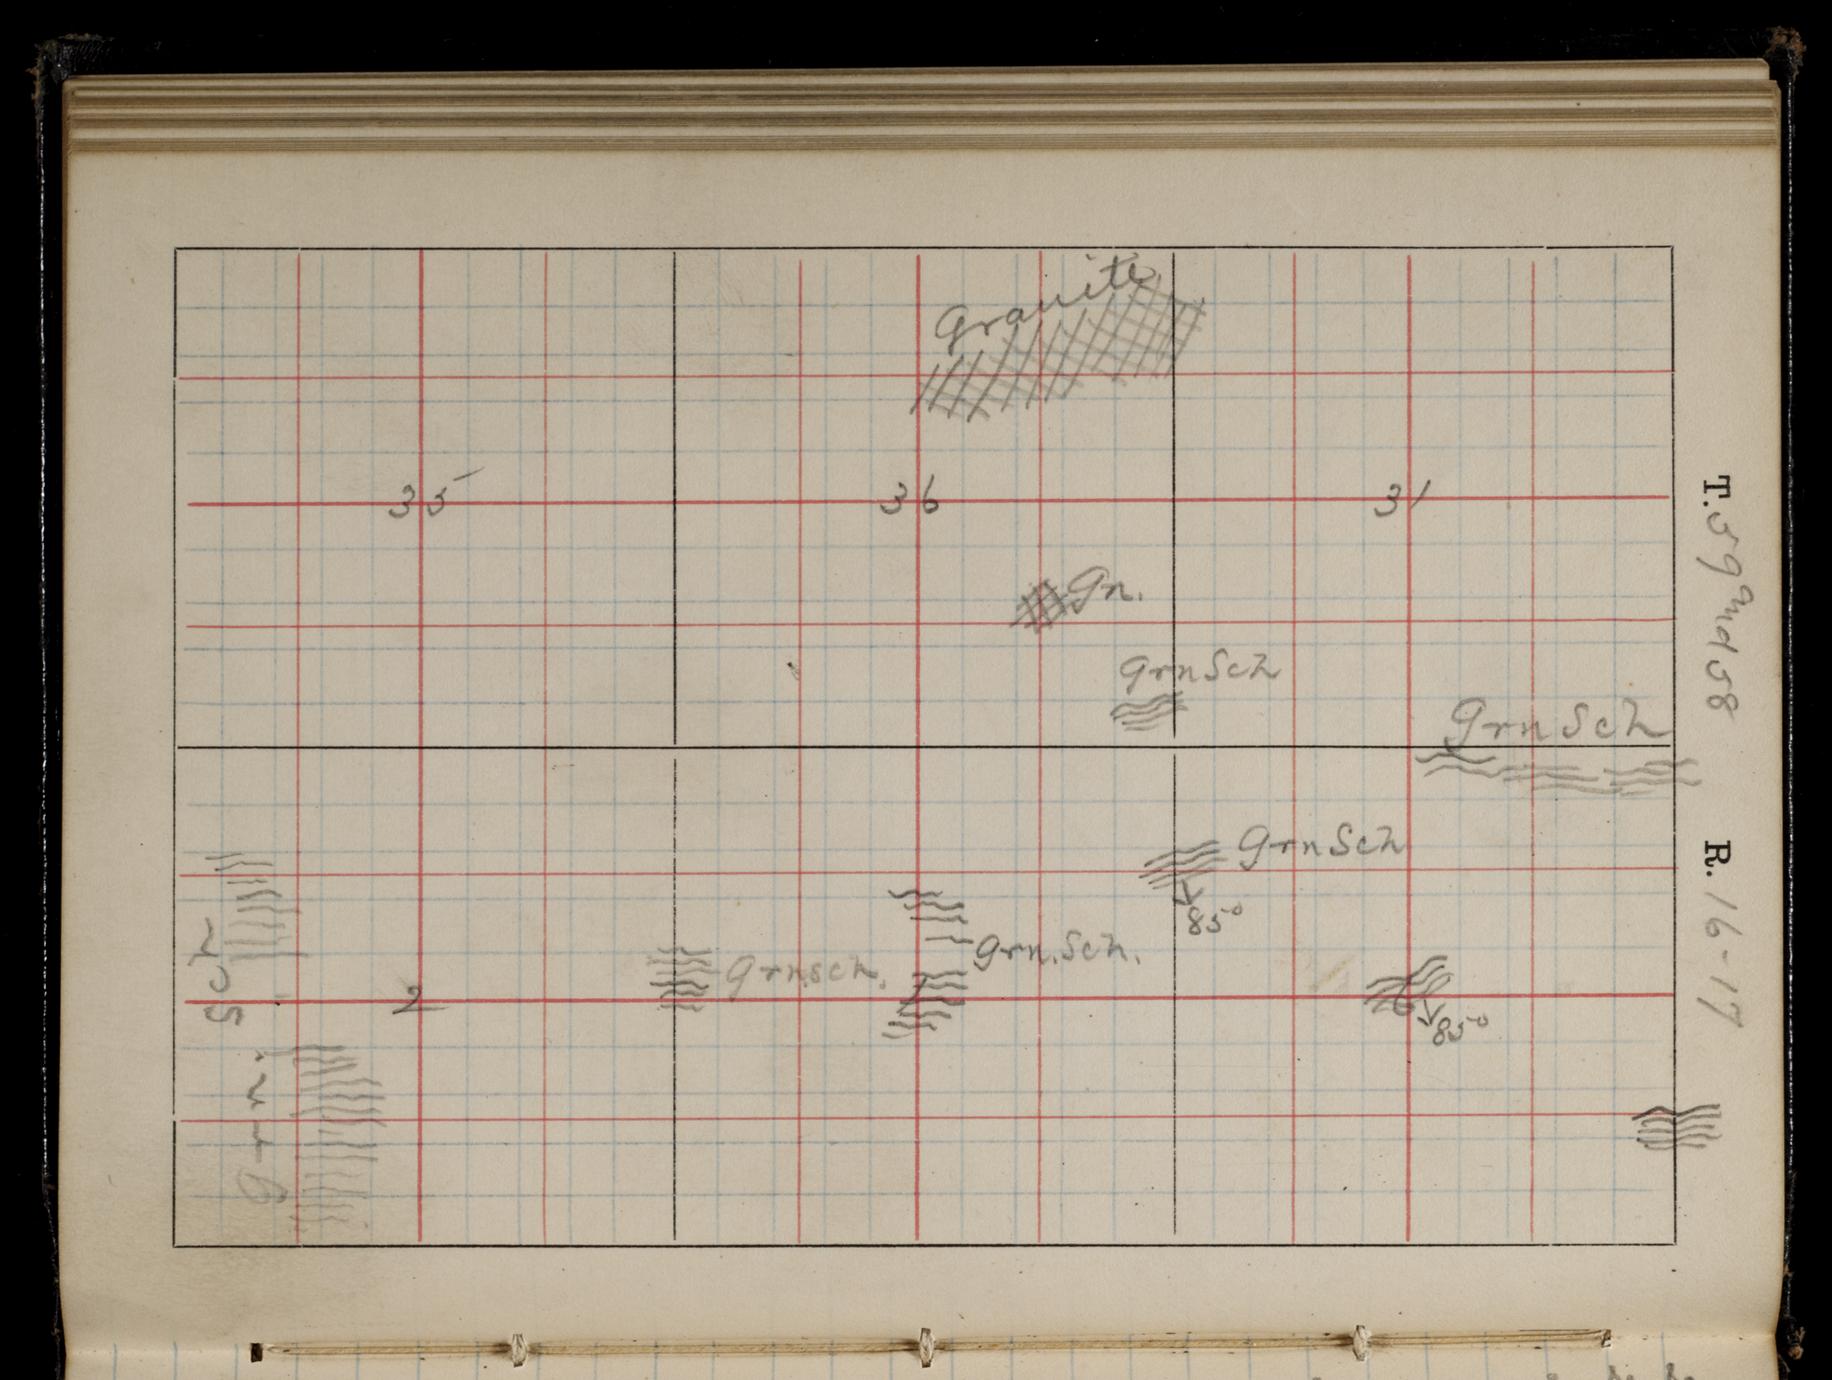 Granite
35
36
31
Gn.
GrnSch
GrnSch
GrnSch
85°
Grn.Sch.
Grnsch.
2
1
6
85°
Grn. Sch
T. 59 and 58 R. 16-17